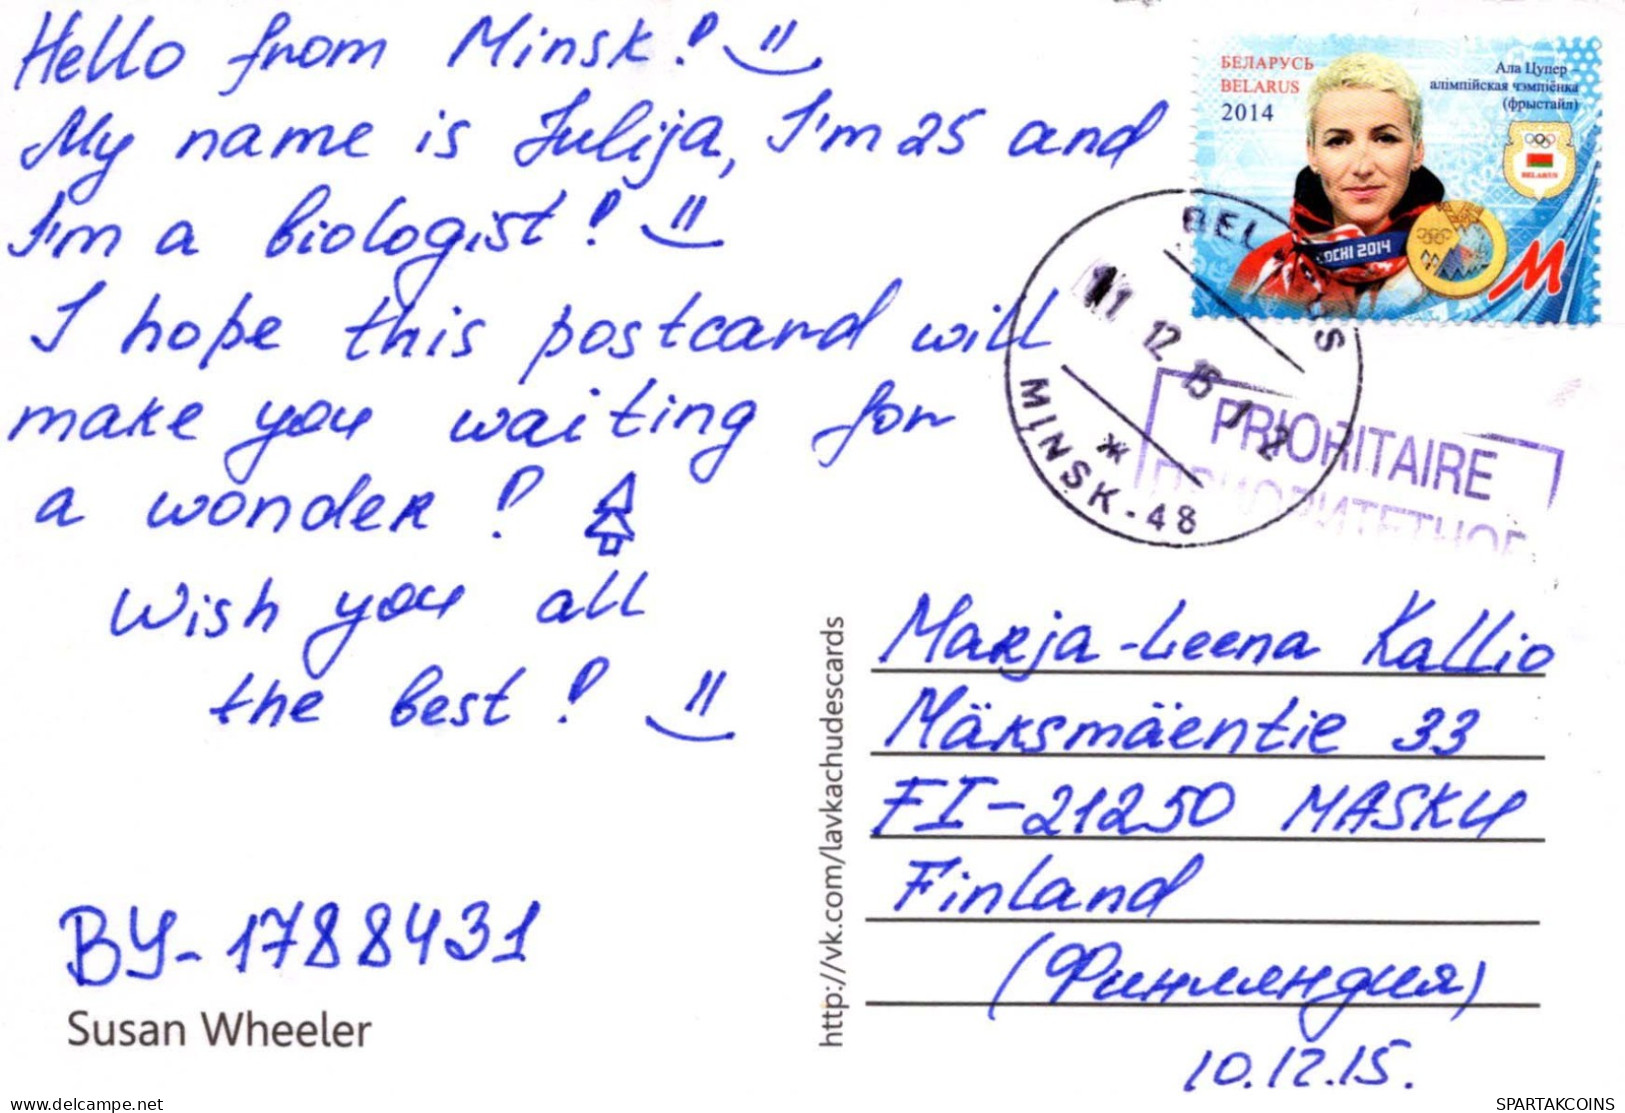 Hello from Minsk!
My name is Julija, I'm 25 and
I'm a biologist!
I hope this postcard will
make you waiting for
a wonder!
Wish you all
the best!
BY-1788431
Susan Wheeler
http://vk.com/lavkachudescards
БЕЛАРУСЬ
BELARUS
2014
Ала Цупер –
алімпійская чэмпіёнка
(фрыстайл)
BELARUS
SOCHI 2014
M
BELARUS
11 12 15 12
MINSK-48
PRIORITAIRE
ПРИОРИТЕТНОЕ
Marja-Leena Kallio
Mäksmäentie 33
FI-21250 MASKU
Finland
(Финляндия)
10.12.15.
SPARTAKCOINS
delcampe.net